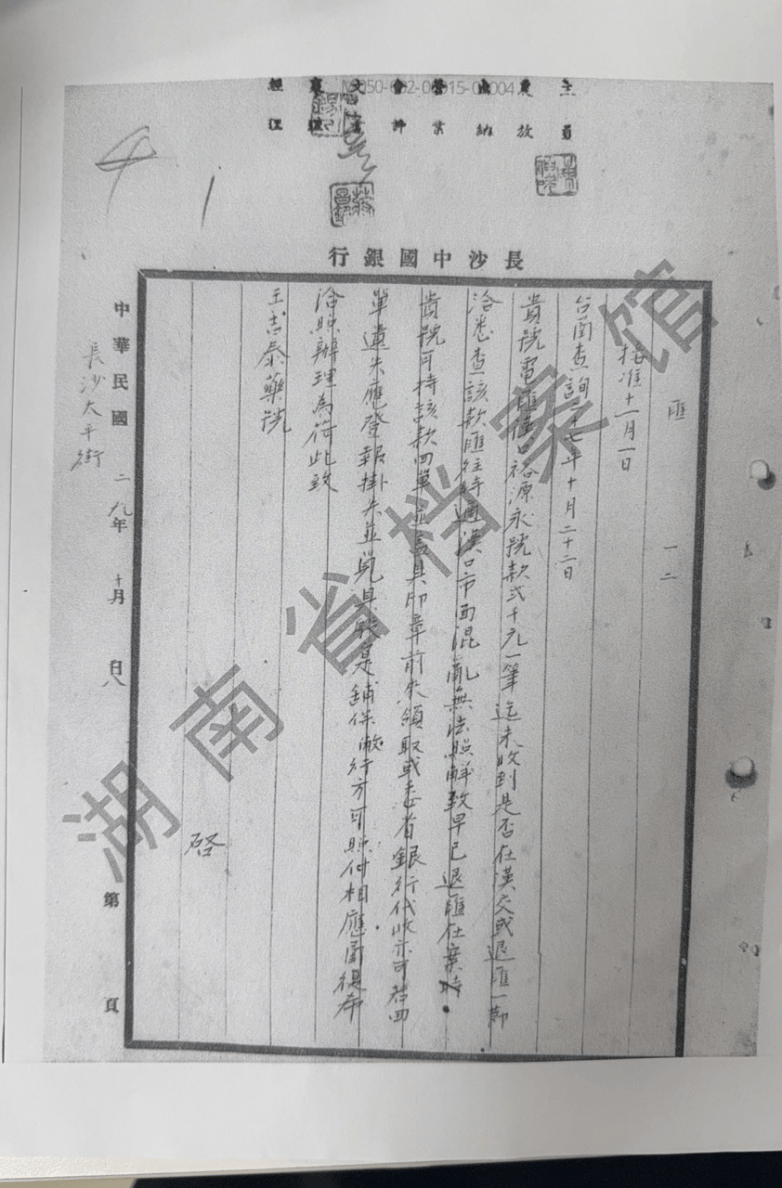 主員
營業
會計
經理
4 1
長沙中國銀行
匯 一二
接准十一月一日
台函查詢廿七年十月二十二日
貴號電匯漢口裕源永號款弍千元一筆迄未收到是否在漢交或退匯一節
洽悉查該款匯往時適漢口市面混亂無法照解致早已退匯在案時
貴號可持該款回單並蓋具印章前來領取或委省銀行代收亦可若回
單遺失應登報掛失並覓具殷實鋪保敝行方可照付相應函復希
洽照辦理為荷此致
王吉泰藥號
啓
中華民國二九年十月八日 第 頁
長沙太平街
湖南省档案馆